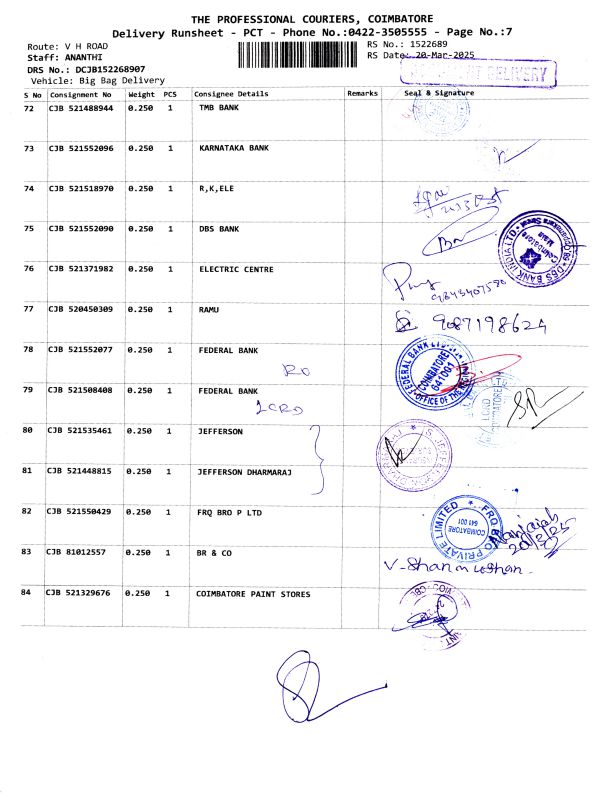 THE PROFESSIONAL COURIERS, COIMBATORE
Delivery Runsheet - PCT - Phone No.:0422-3505555 - Page No.:7
Route: V H ROAD
RS No.: 1522689
Staff: ANANTHI
RS Date: 20-Mar-2025
DRS No.: DCJB152268907
DELIVERY
Vehicle: Big Bag Delivery
S No Consignment No Weight PCS Consignee Details Remarks Seal & Signature
72 CJB 521488944 0.250 1 TMB BANK
73 CJB 521552096 0.250 1 KARNATAKA BANK
74 CJB 521518970 0.250 1 R,K,ELE
75 CJB 521552090 0.250 1 DBS BANK
DBS BANK INDIA LTD
Coimbatore
Main
76 CJB 521371982 0.250 1 ELECTRIC CENTRE
77 CJB 520450309 0.250 1 RAMU
9087198624
78 CJB 521552077 0.250 1 FEDERAL BANK
RO
FEDERAL BANK LTD
COIMBATORE
641001
OFFICE OF THE
79 CJB 521508408 0.250 1 FEDERAL BANK
LCRD
80 CJB 521535461 0.250 1 JEFFERSON
81 CJB 521448815 0.250 1 JEFFERSON DHARMARAJ
82 CJB 521550429 0.250 1 FRQ BRO P LTD
PRIVATE LIMITED ★ FRQ
COIMBATORE
641 001
20/3/25
83 CJB 81012557 0.250 1 BR & CO
V-Shanmughan
84 CJB 521329676 0.250 1 COIMBATORE PAINT STORES